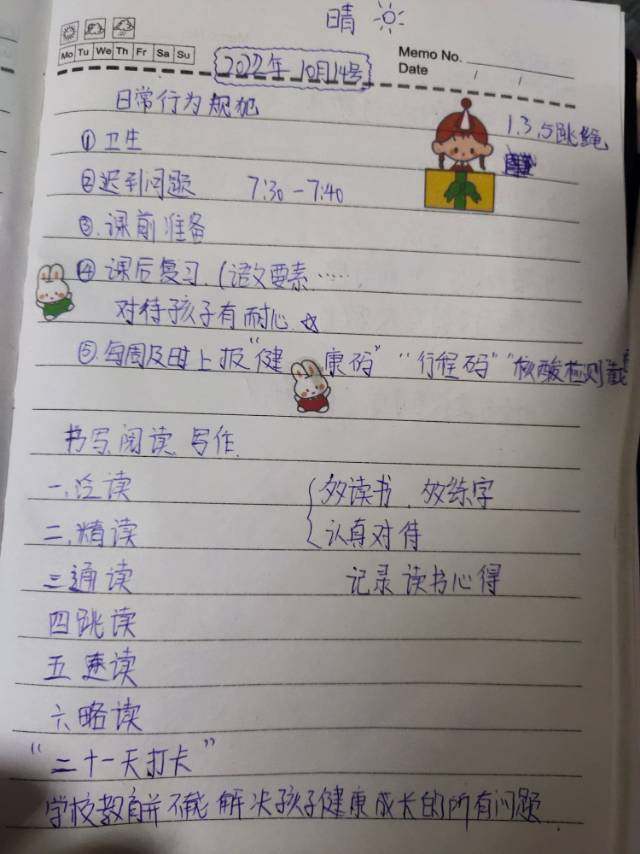 晴
Mo Tu We Th Fr Sa Su
Memo No.
Date / /
2022年10月14号
日常行为规犯
1.3.5跳绳
①卫生
②迟到问题 7:30-7:40
③.课前准备
④课后复习.(语文要素……
对待孩子有耐心☆
⑤.每周及时上报“健康码”“行程码”“核酸检测截
书写.阅读.写作.
一.泛读 多读书.多练字
二.精读 认真对待
三通读 记录读书心得
四跳读
五速读
六略读
“二十一天打卡”
学校教育并不能解决孩子健康成长的所有问题.